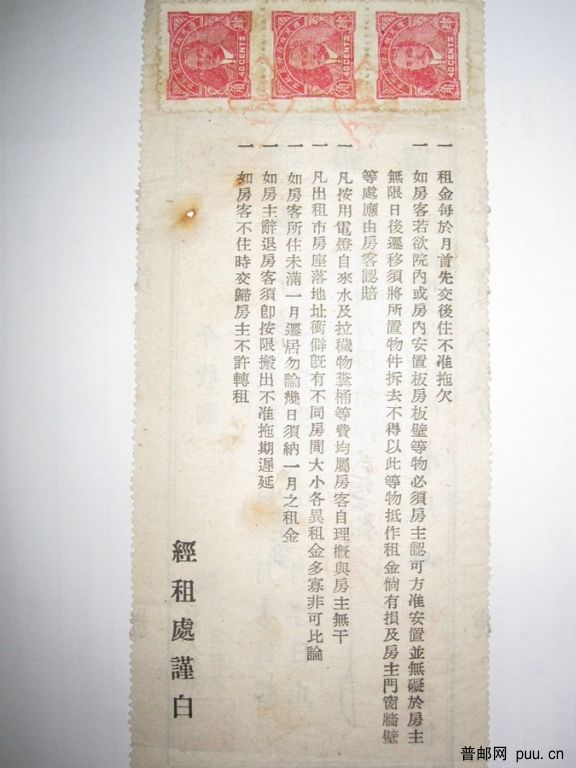 肆角
40 CENTS
肆角
40 CENTS
肆角
40 CENTS
一租金每於月首先交後住不准拖欠
一如房客若欲院內或房內安置板房板壁等物必須房主認可方准安置並無礙於房主
無限日後遷移須將所置物件拆去不得以此等物抵作租金倘有損及房主門窗牆壁
等處應由房客認賠
一凡按用電燈自來水及拉穢物糞桶等費均屬房客自理概與房主無干
一凡出租市房座落地址衝僻旣有不同房間大小各異租金多寡非可比論
一如房客所住未滿一月遷居勿論幾日須納一月之租金
一如房主辭退房客須卽按限搬出不准拖期遲延
一如房客不住時交歸房主不許轉租
經租處謹白
普邮网 puu.cn